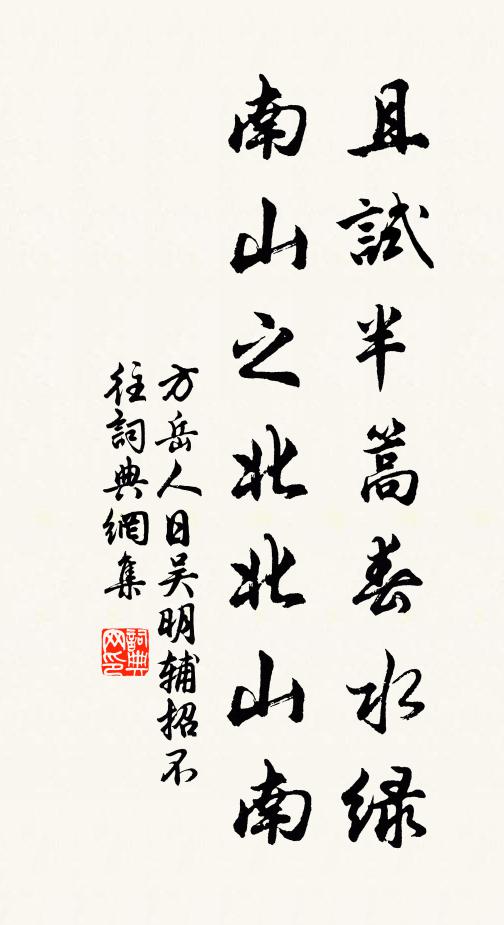 且試半篙春水綠
南山之北北山南
方岳人日吴明辅招不
往詞典網集
詞典网印